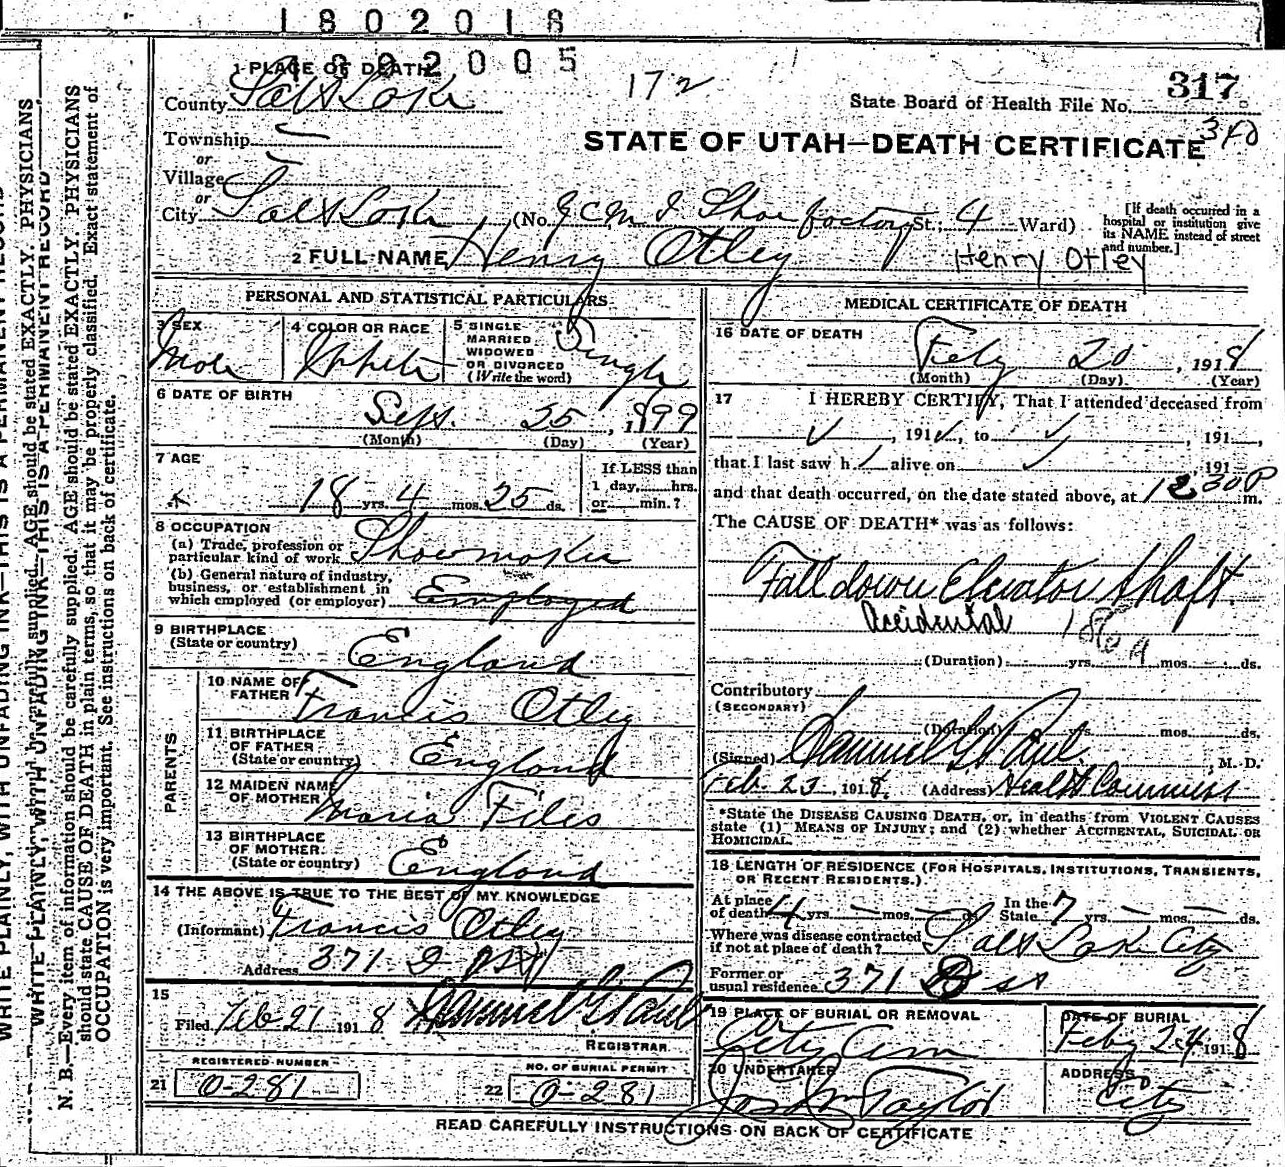 1802018
1802005
172
317
State Board of Health File No.
STATE OF UTAH—DEATH CERTIFICATE
1 PLACE OF DEATH
County Salt Lake
Township
or
Village
or
City Salt Lake (No. Z C M I Shoe factory St.; 4 Ward)
[If death occurred in a hospital or institution give its NAME instead of street and number.]
2 FULL NAME Henry Otley
Henry Otley
PERSONAL AND STATISTICAL PARTICULARS
3 SEX Male
4 COLOR OR RACE White
5 SINGLE MARRIED WIDOWED OR DIVORCED (Write the word) Single
6 DATE OF BIRTH
Sept. 25, 1899
(Month) (Day) (Year)
7 AGE
18 yrs. 4 mos. 25 ds.
If LESS than 1 day, hrs. or min.?
8 OCCUPATION
(a) Trade, profession or particular kind of work Shoemaker
(b) General nature of industry, business, or establishment in which employed (or employer) Employed
9 BIRTHPLACE
(State or country) England
PARENTS
10 NAME OF FATHER Francis Otley
11 BIRTHPLACE OF FATHER (State or country) England
12 MAIDEN NAME OF MOTHER Maria Files
13 BIRTHPLACE OF MOTHER (State or country) England
14 THE ABOVE IS TRUE TO THE BEST OF MY KNOWLEDGE
(Informant) Francis Otley
Address 371
15
Filed Feb 21 1918 Samuel G. Paul
REGISTRAR
REGISTERED NUMBER
21 0-281
NO. OF BURIAL PERMIT
22 0-281
MEDICAL CERTIFICATE OF DEATH
16 DATE OF DEATH
Feby 20, 1918
(Month) (Day) (Year)
17 I HEREBY CERTIFY, That I attended deceased from
, 191 , to , 191 ,
that I last saw h alive on , 191
and that death occurred, on the date stated above, at 12 30 P m.
The CAUSE OF DEATH* was as follows:
Fall down Elevator Shaft.
Accidental
(Duration) yrs. mos. ds.
Contributory
(SECONDARY)
(Duration) yrs. mos. ds.
(Signed) Samuel G. Paul, M. D.
Feb. 23, 1918. (Address) Health Commiss
*State the DISEASE CAUSING DEATH, or, in deaths from VIOLENT CAUSES
state (1) MEANS OF INJURY; and (2) whether ACCIDENTAL, SUICIDAL OR
HOMICIDAL.
18 LENGTH OF RESIDENCE (FOR HOSPITALS, INSTITUTIONS, TRANSIENTS,
OR RECENT RESIDENTS.)
At place of death 4 yrs. mos. ds. In the State 7 yrs. mos. ds.
Where was disease contracted if not at place of death? Salt Lake City
Former or usual residence 371 D st
19 PLACE OF BURIAL OR REMOVAL City Cem
DATE OF BURIAL Feby 24, 1918
20 UNDERTAKER Jos Wm Taylor
ADDRESS City
READ CAREFULLY INSTRUCTIONS ON BACK OF CERTIFICATE
WRITE PLAINLY, WITH UNFADING INK—THIS IS A PERMANENT RECORD
WRITE PLAINLY, WITH UNFADING INK—THIS IS A PERMANENT RECORD
N. B.—Every item of information should be carefully supplied. AGE should be stated EXACTLY. PHYSICIANS
should state CAUSE OF DEATH in plain terms, so that it may be properly classified. Exact statement of
OCCUPATION is very important. See instructions on back of certificate.